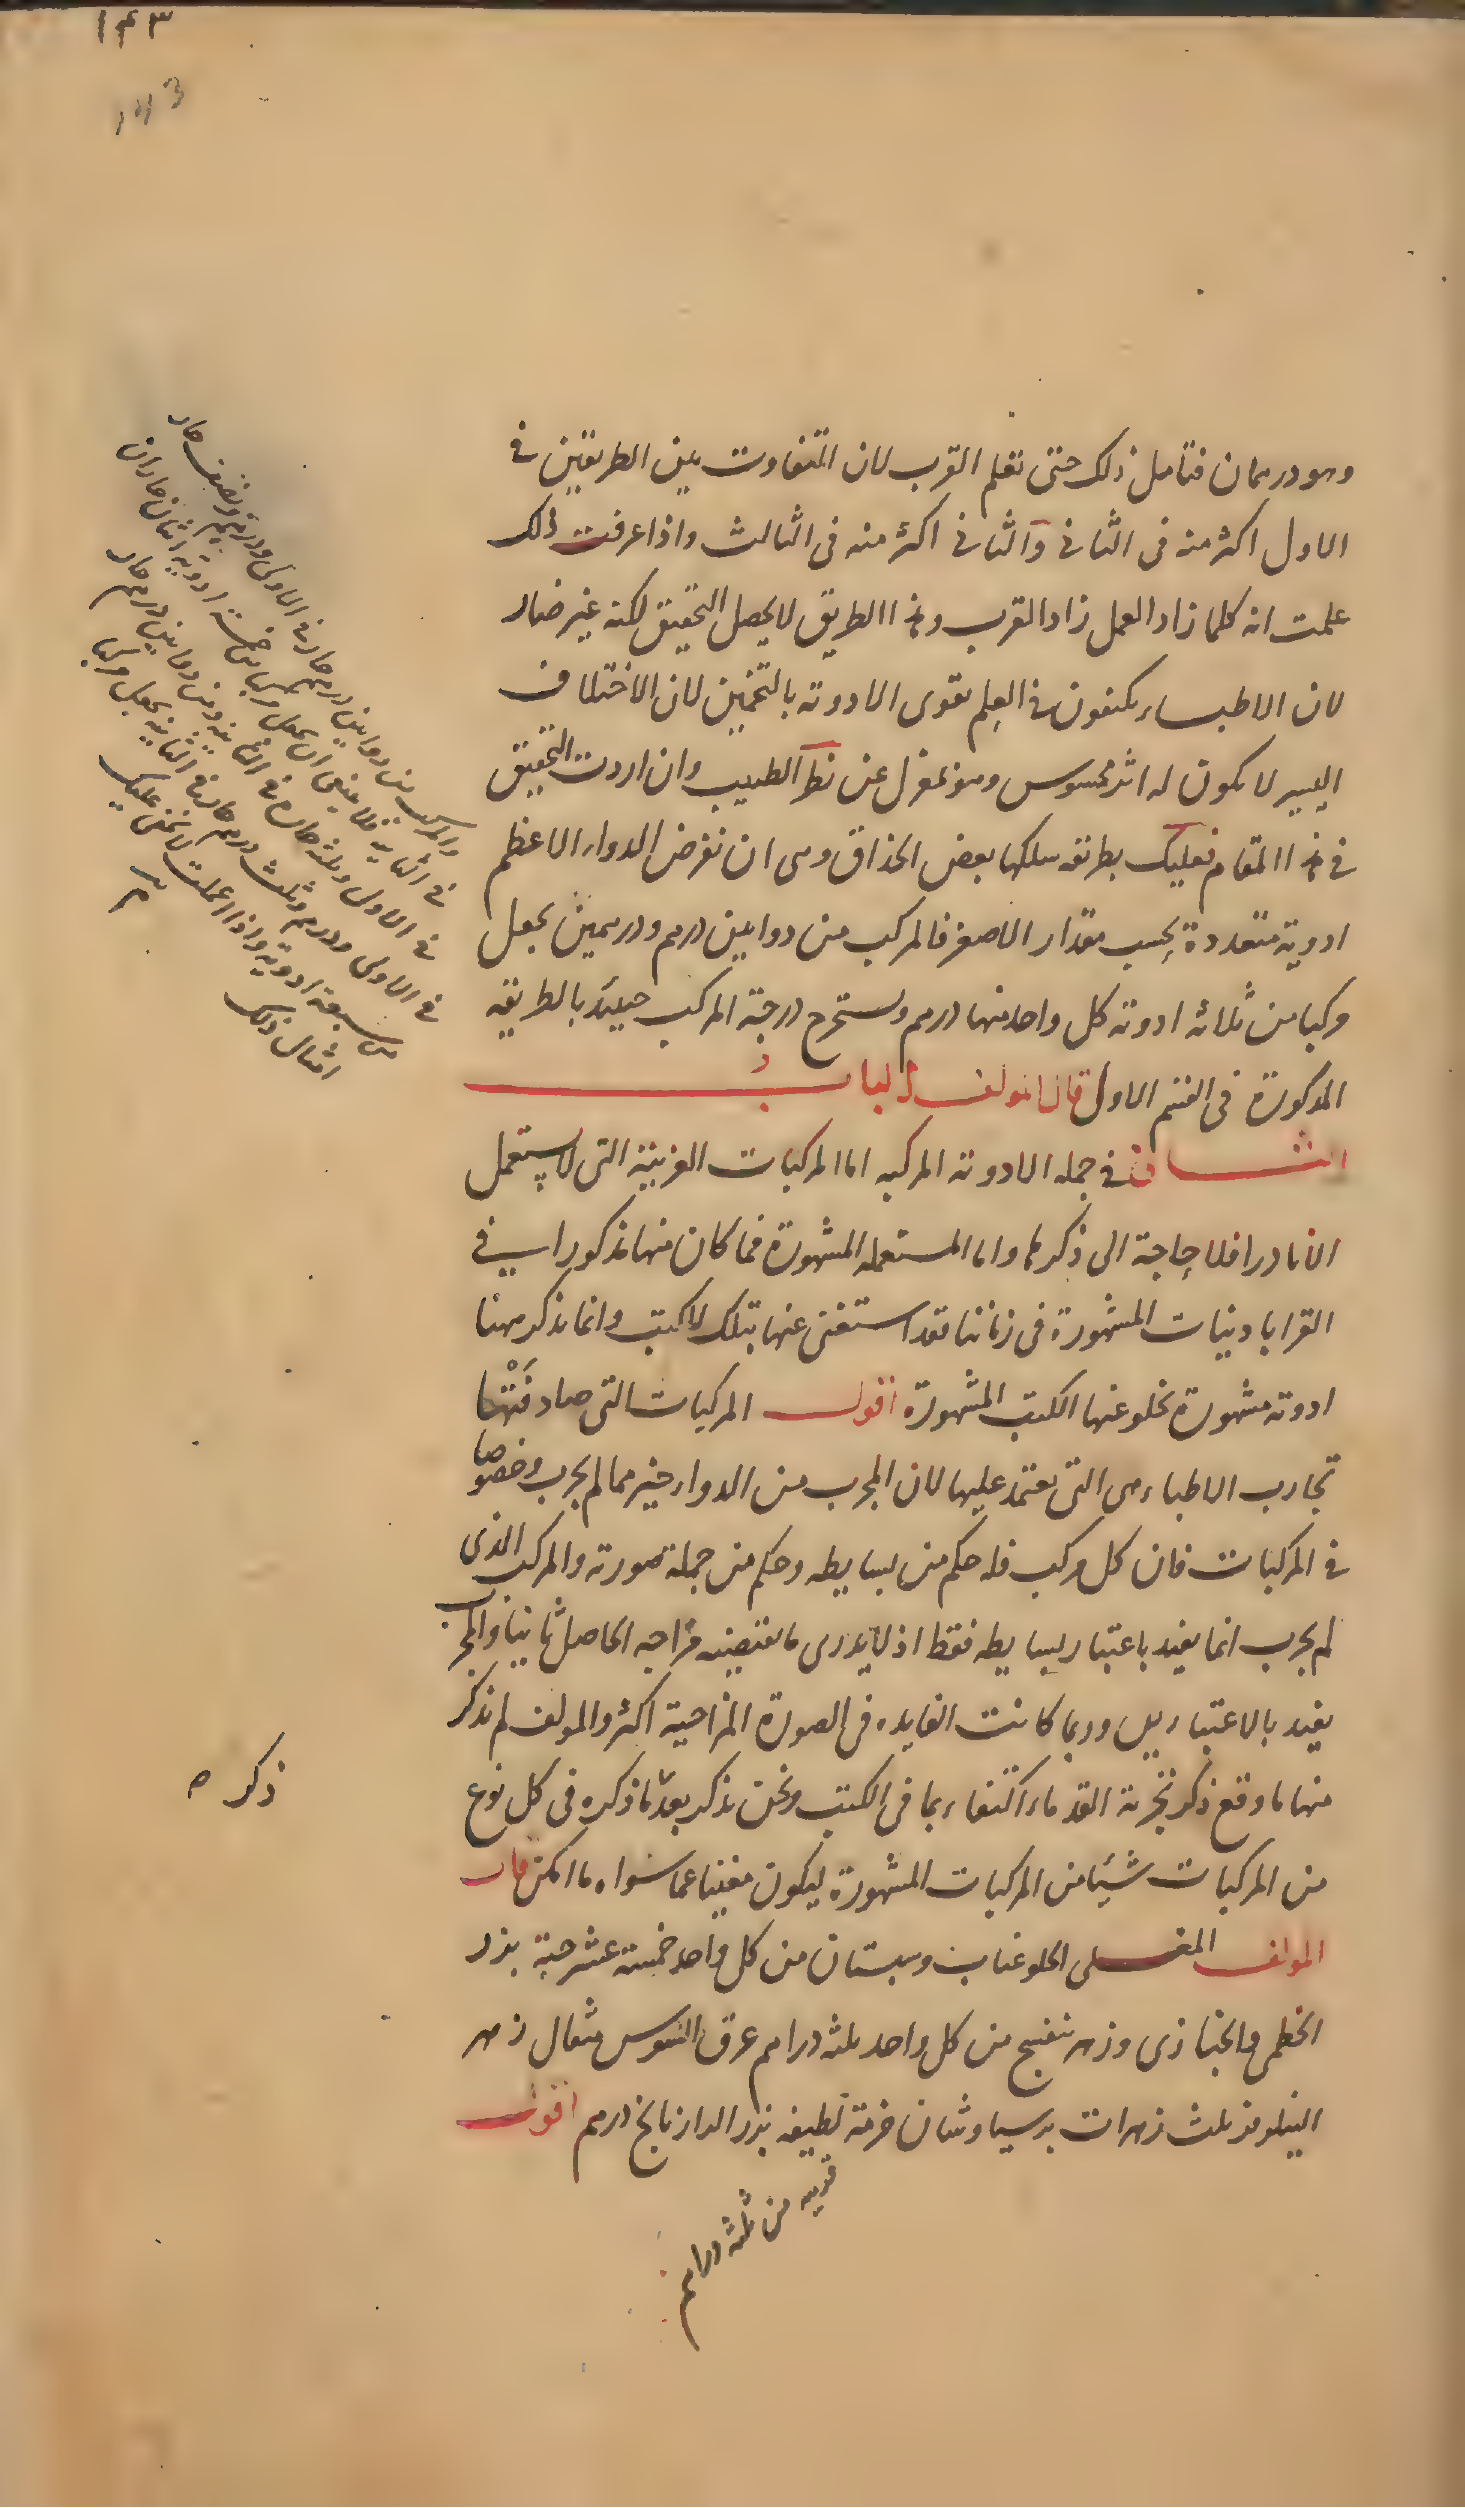 ١٤٣
143
وهو درهمان فتأمل ذلك حتى تعلم القرب لان التفاوت بين الطريقين في
الاول اكثر منه فى الثانى والثانى اكثر منه فى الثالث واذا عرفت ذلك
علمت انه كلما زاد العمل زاد القرب وهذا الطريق لا يحصل التحقيق لكنه غير ضار
لان الاطباء يكتفون في العلم بقوى الادوية بالتخمين لان الاختلاف
اليسير لا يكون له اثر محسوس وهو بمعزل عن نظر الطبيب وان اردت التحقيق
في هذا المقام فعليك بطريقه سلكها بعض الحذاق وهى ان نفرض الدواء الاعظم
ادوية متعددة بحسب مقدار الاصغر فالمركب من دوايين درهم ودرهمين يجعل
مركبا من ثلاثة ادوية كل واحد منها درهم ويستخرج درجة المركب حينئذ بالطريقه
المذكورة فى القسم الاول قال المولف الباب
الثانى في جمله الادوية المركبه اما المركبات الغريبة التى لا يستعمل
الا نادرا فلا حاجة الى ذكرها واما المستعمله المشهورة فما كان منها مذكورا في
القراباديات المشهورة فى زماننا فقد استغنى عنها بتلك الكتب وانما نذكر ههنا
ادوية مشهورة تخلو عنها الكتب المشهورة اقول المركبات التى صادفتها
تجارب الاطباء هى التى يعتمد عليها لان المجرب من الدواء خير مما لم يجرب وخصوصا
في المركبات فان كل مركب فله حكم من بسايطه وحكم من جملة صورته والمركب الذى
لم يجرب انما يفيد باعتبار بسايطه فقط اذ لا يدرى ما يقتضيه مزاجه الحاصل ثانيا والمجرب
يفيد بالاعتبارين وربما كانت الفايده فى الصورة المزاجية اكثر والمولف لم يذكر
منها ما وقع ذكر تجربة القدماء اكتفاء بما فى الكتب ونحن نذكر بعد ما ذكره فى كل نوع
من المركبات شيئا من المركبات المشهورة ليكون مغنيا عما سواه ما امكن قال
المولف المغلى الحلو عناب وسبستان من كل واحد خمسة عشر حبة بزر
الخطمى والخبازى وزهر بنفسج من كل واحد ثلثه دراهم عرق السوس مثقال زهر
النيلوفر ثلث زهرات برسياوشان حزمة لطيفه بزر الرازيانج درهم اقول
قريبه من ثلثه دراهم
والمركب من دوايين درهم حار في الاولى ودرهم ونصف حار
في الثانية فلا ينبغى ان يجعل مركبا من خمسة ادوية اثنان حاران
في الاولى وثلثه حاره في الثانيه ومن دوايين درهم حار
في الاولى ودرهم وثلث درهم حار في الثانية يجعل مركبا
من سبعة ادوية واذا عملت لا يخفى عليك
امثال ذلك
ذكر ه